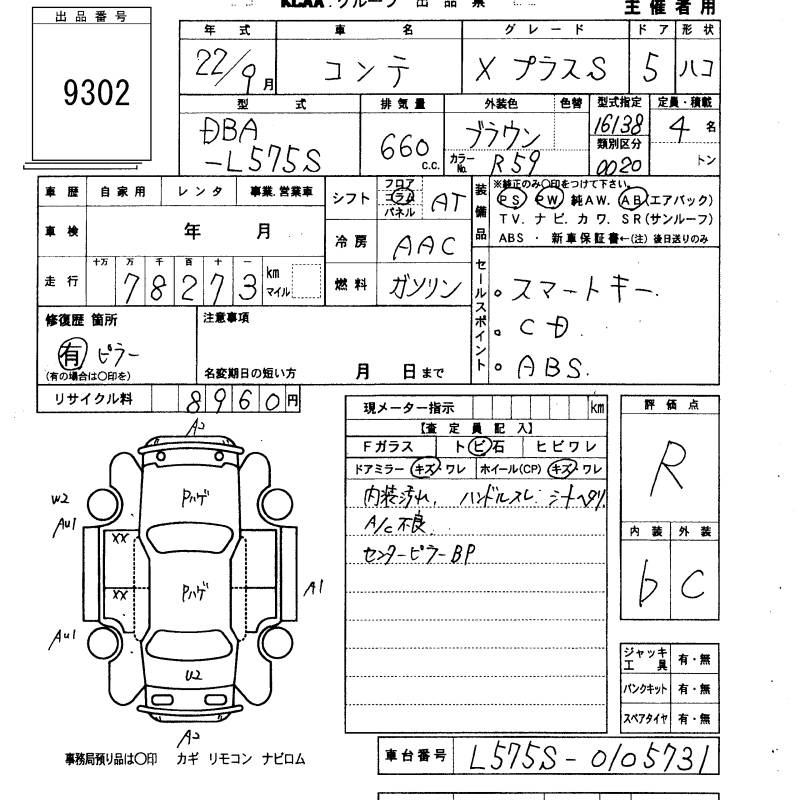 KCAA.グループ 出品票
主催者用
出品番号
9302
年式 車名 グレード ドア 形状
22/9月 コンテ X プラスS 5 ハコ
型式 排気量 外装色 色替 型式指定 定員・積載
DBA
-L575S
660 c.c.
ブラウン
カラーNo. R59
16138
類別区分
0020
4 名
トン
車歴 自家用 レンタ 事業.営業車
車検 年 月
走行 十万 万 千 百 十 一
78273 km マイル
シフト フロア コラム パネル AT
冷房 AAC
燃料 ガソリン
装備品
※純正のみ〇印をつけて下さい。
PS PW 純AW. AB(エアバック)
TV. ナビ. カワ. SR(サンルーフ)
ABS ・ 新車保証書←(注)後日送りのみ
セールスポイント
。スマートキー.
。CD.
。ABS.
修復歴 箇所
有 ピラー
(有の場合は〇印を)
注意事項
名変期日の短い方 月 日まで
リサイクル料 8960円
現メーター指示 km
【査定員記入】
Fガラス トビ石 ヒビワレ
ドアミラー キズ・ワレ ホイール(CP) キズ・ワレ
内装汚れ, ハンドルスレ. シートヘタリ.
A/C不良.
センターピラーBP
評価点
R
内装 外装
b C
ジャッキ工具 有・無
パンクキット 有・無
スペアタイヤ 有・無
A2
Pハゲ
W2
AU1
XX
XX
Pハゲ
A1
AU1
U2
A2
事務局預り品は〇印 カギ リモコン ナビロム
車台番号 L575S-0105731